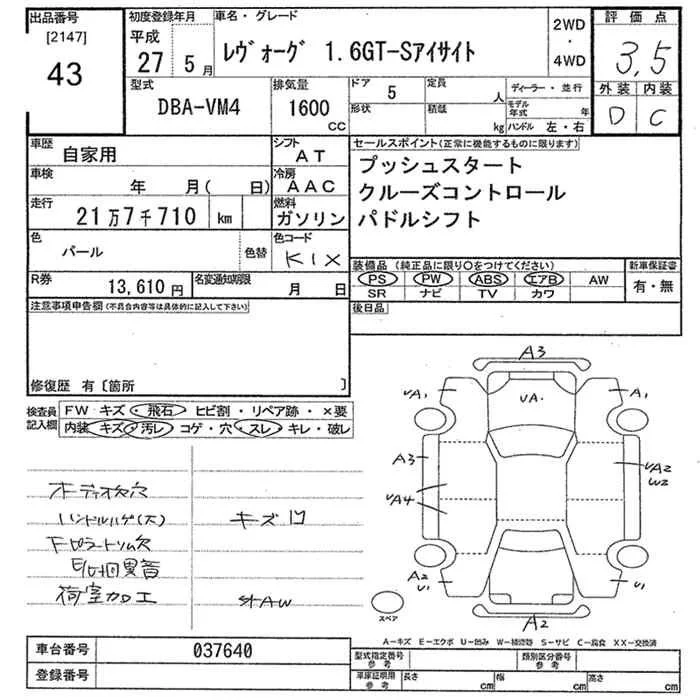 出品番号
[2147]
43
初度登録年月
平成
27 年 5 月
車名・グレード
レヴォーグ 1.6GT-Sアイサイト
2WD
・
4WD
評価点
3,5
外装 内装
D C
型式
DBA-VM4
排気量
1600
CC
ドア
5
定員
人
形状
積載
kg
ディーラー・並行
モデル年式 年
ハンドル 左・右
車歴
自家用
シフト
AT
車検
年 月( 日)
冷房
AAC
走行
21万7千710 km
燃料
ガソリン
色
パール
色替
色コード
KIX
R券
13,610円
名変通知期限
月 日
セールスポイント(正常に機能するものに限ります)
プッシュスタート
クルーズコントロール
パドルシフト
装備品(純正品に限り○をつけてください)
PS PW ABS エアB AW
SR ナビ TV カワ
新車保証書
有・無
後日品
注意事項申告欄(不具合内容等は具体的に記入して下さい)
修復歴 有〔箇所 〕
検査員記入欄
FW キズ・飛石 ヒビ割・リペア跡・×要
内装 キズ・汚レ コゲ・穴・スレ キレ・破レ
オーディオ欠穴
ハンドルハゲ(大)
キズ凹
Fピラートリム欠
荷室加工
A3
UA1
UA.
A1
A3
UA2
W2
UA4
A2
U1
U1
A2
スペア
A-キズ E-エクボ U-凹み W-補修跡 S-サビ C-腐食 XX-交換済
車台番号
037640
登録番号
型式指定番号
参考
類別区分番号
参考
車庫証明用
参考
長さ cm
幅 cm
高さ cm